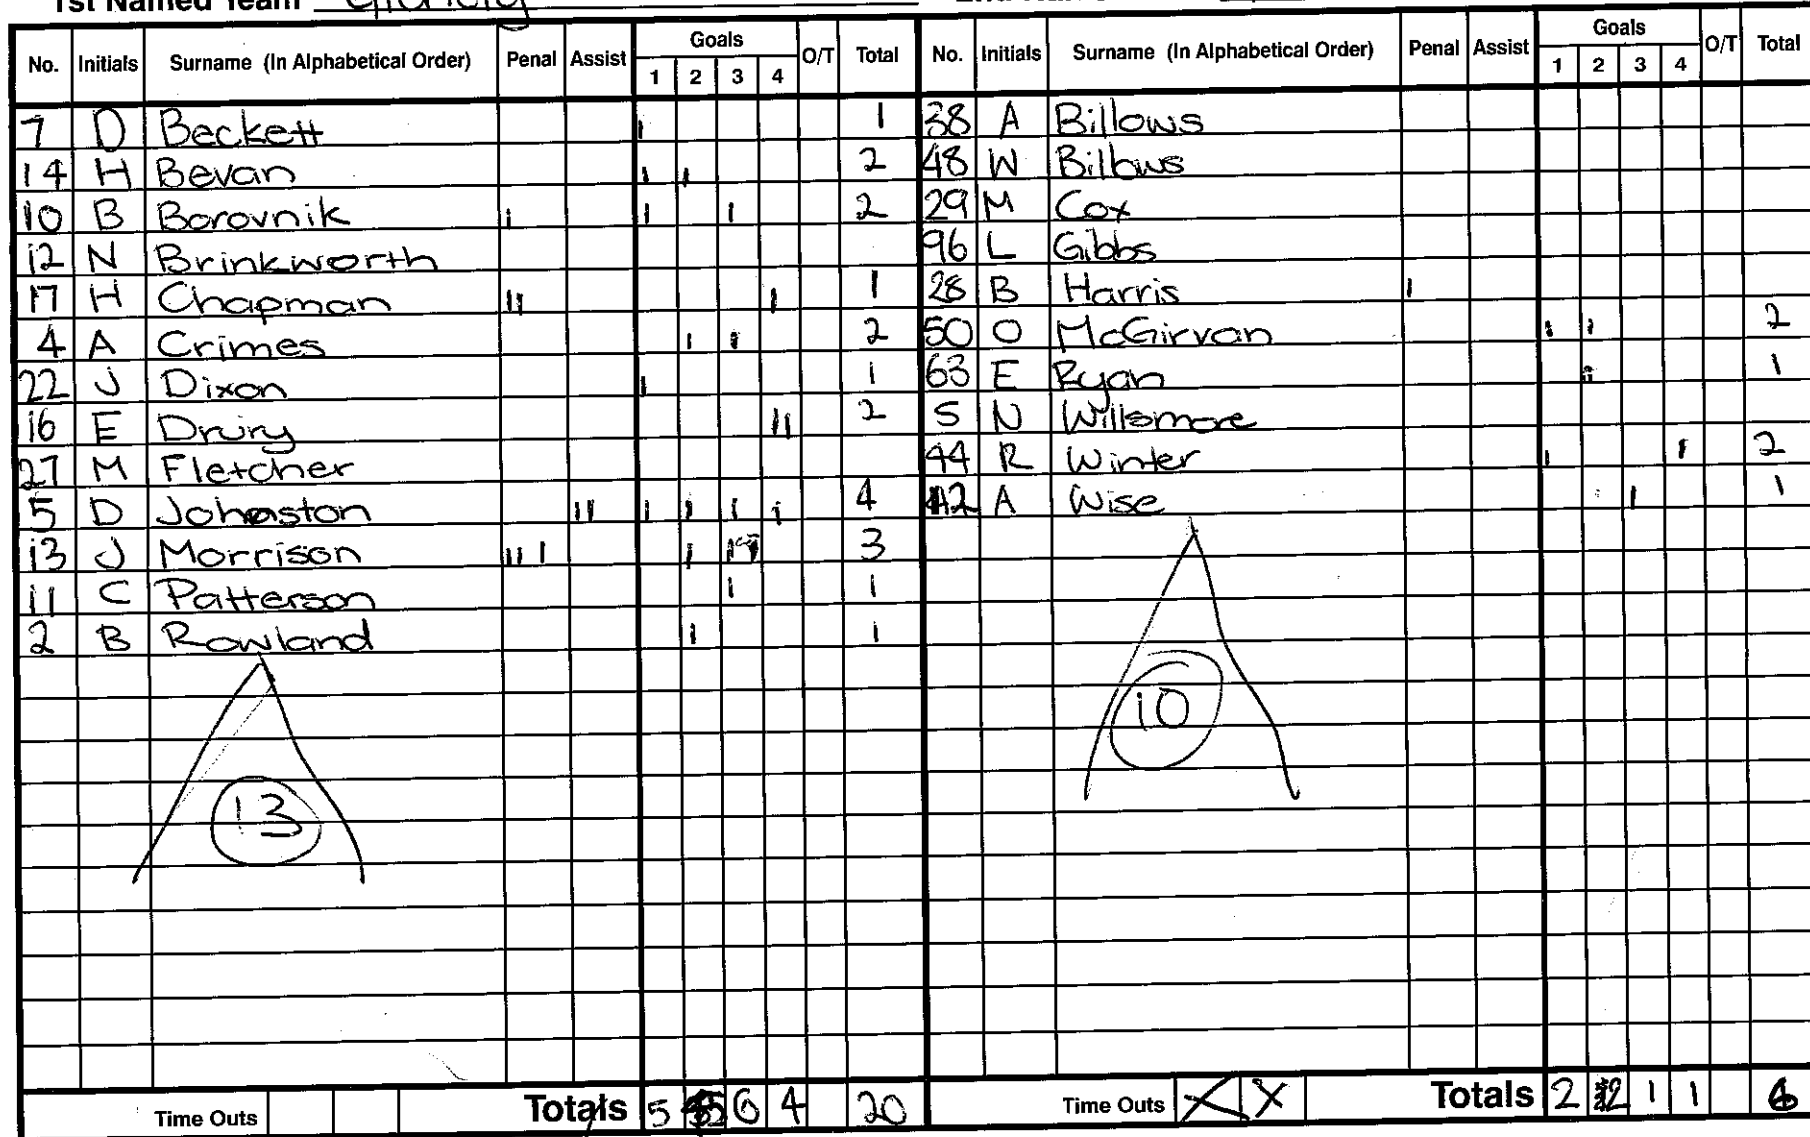 1st Named Team
No. Initials Surname (In Alphabetical Order) Penal Assist Goals 1 2 3 4 O/T Total
7 D Beckett I 1
14 H Bevan I I 2
10 B Borovnik I I I 2
12 N Brinkworth
17 H Chapman II I 1
4 A Crimes I I 2
22 J Dixon I 1
16 E Drury II 2
27 M Fletcher
5 D Johnston II I I I I 4
13 J Morrison III I 3
11 C Patterson I 1
2 B Rowland I 1
13
Time Outs Totals 5 5 6 4 20
No. Initials Surname (In Alphabetical Order) Penal Assist Goals 1 2 3 4 O/T Total
38 A Billows
48 W Billows
29 M Cox
96 L Gibbs
28 B Harris I
50 O McGirvan I I 2
63 E Ryan 1
5 N Willsmore
44 R Winter I I 2
A Wise I 1
10
Time Outs X X Totals 2 2 1 1 6